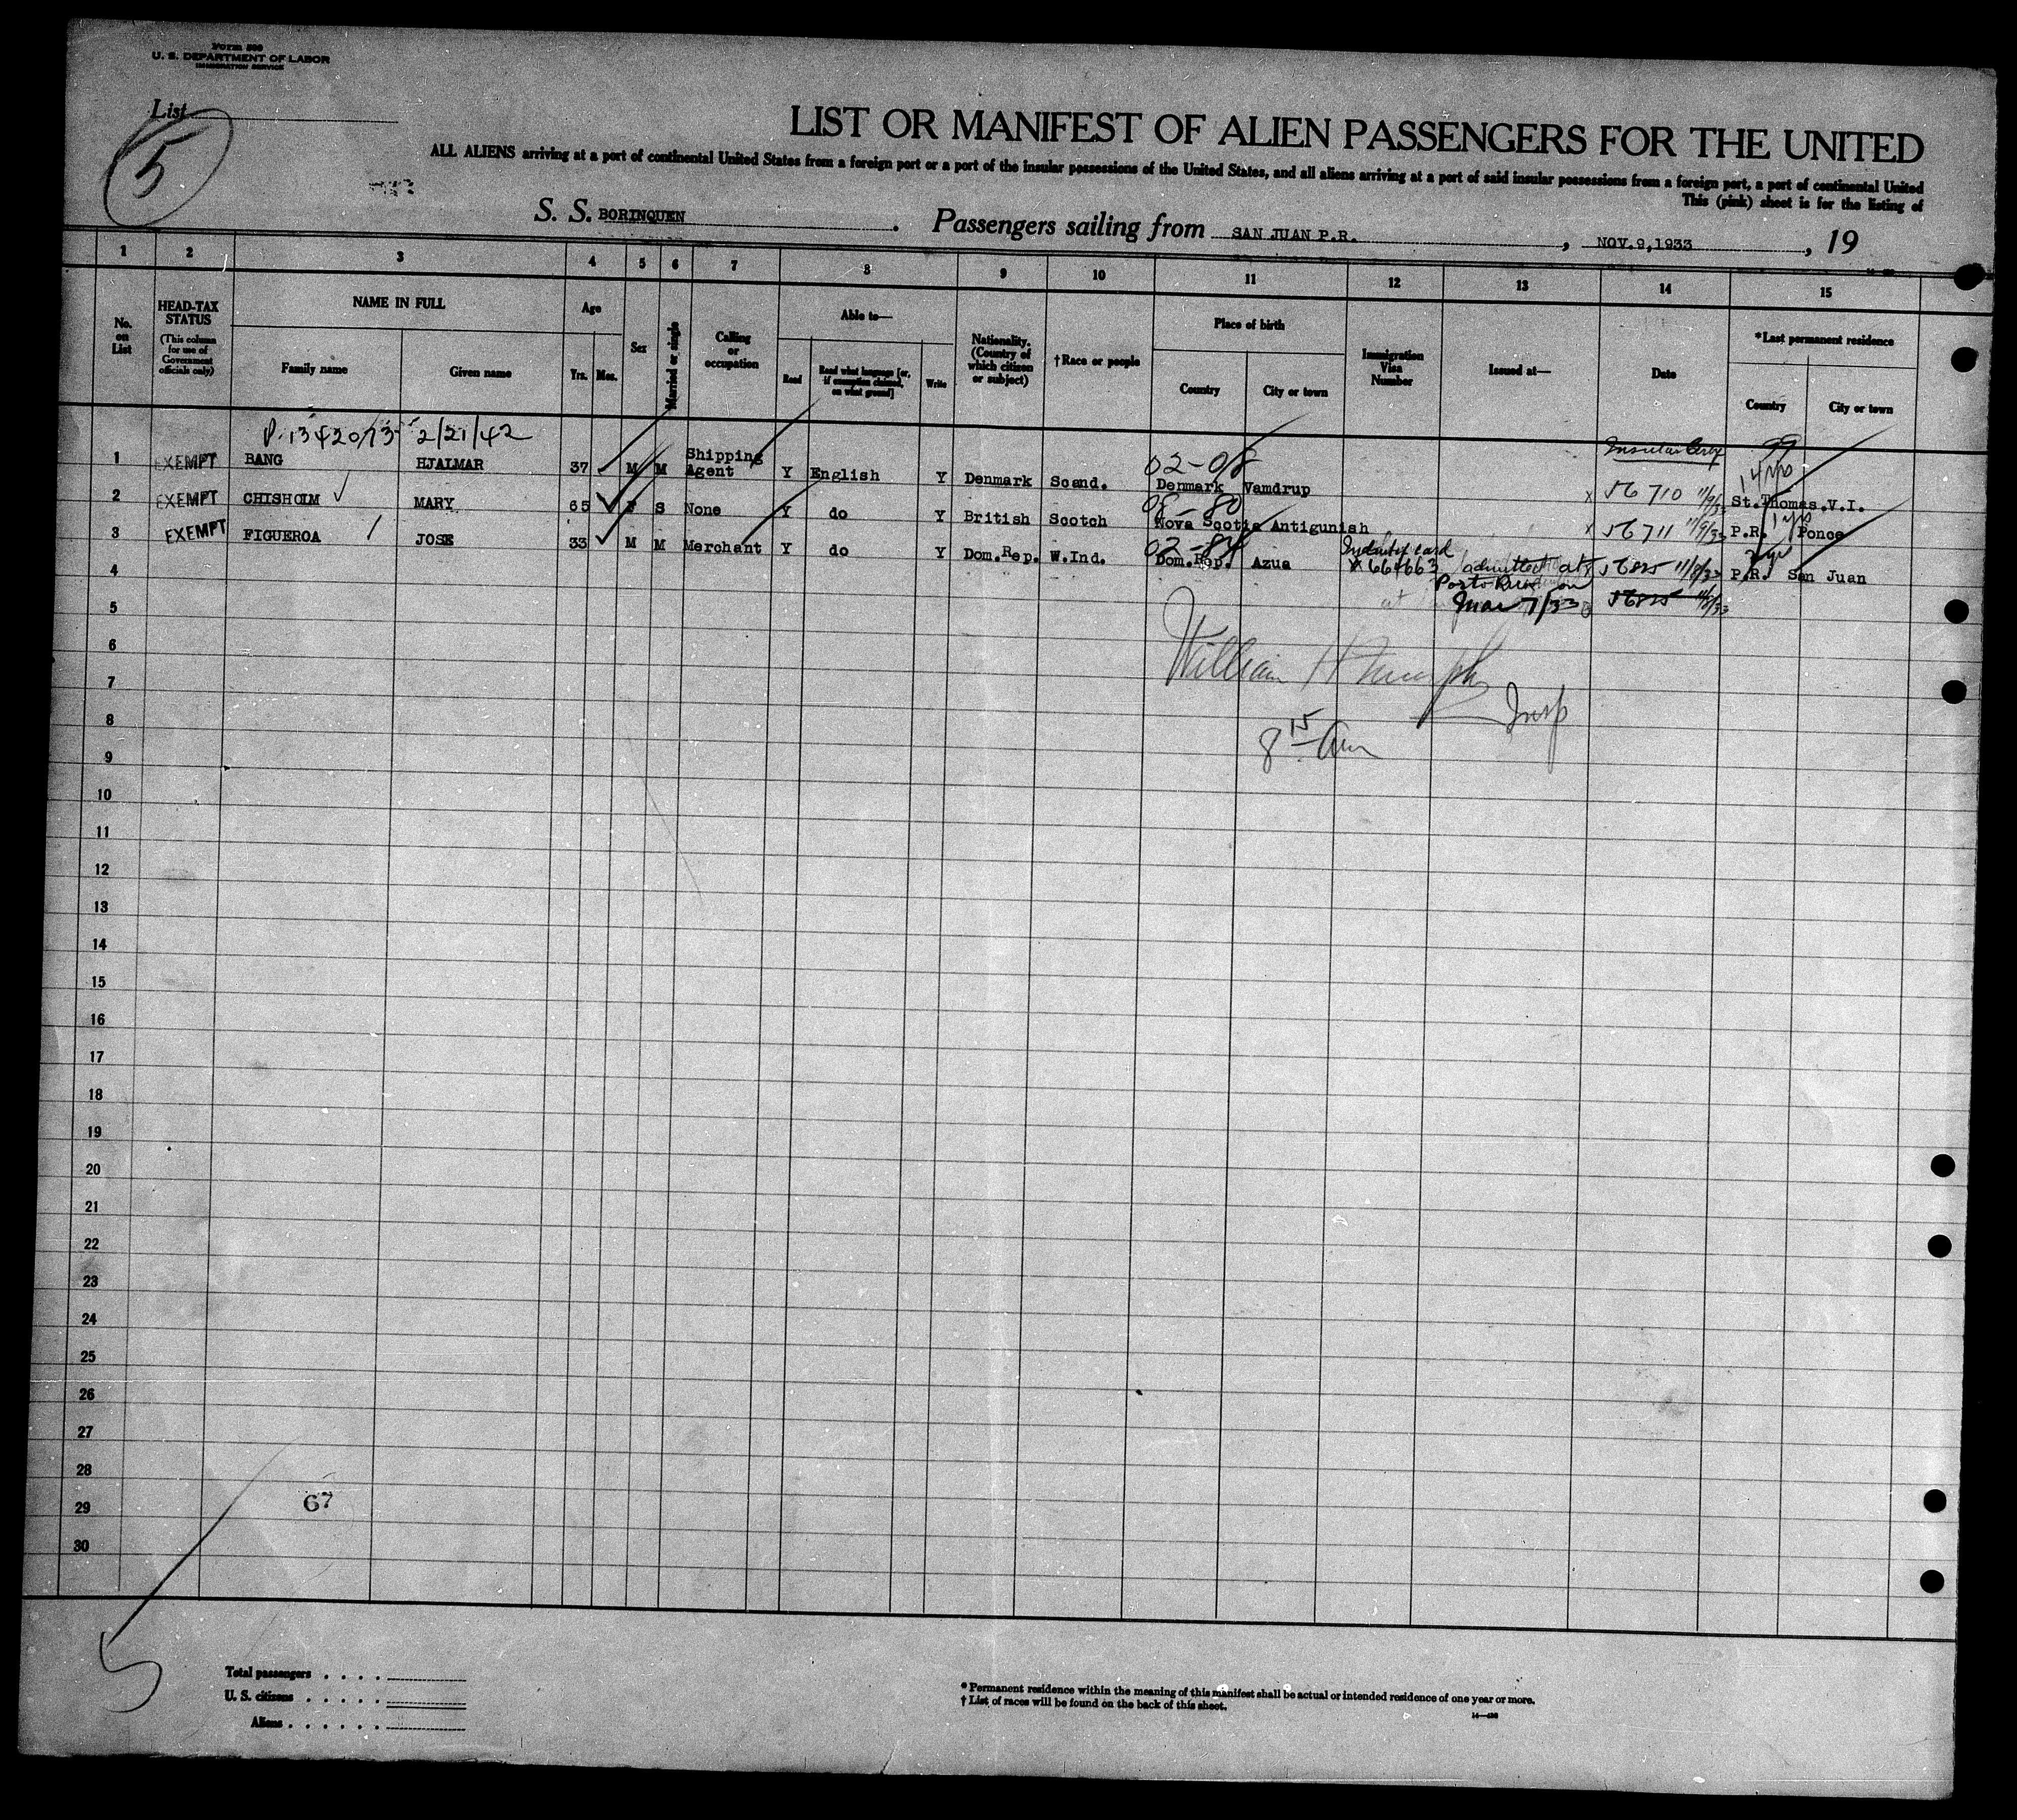 Form 500
U. S. DEPARTMENT OF LABOR
IMMIGRATION SERVICE
List
5
LIST OR MANIFEST OF ALIEN PASSENGERS FOR THE UNITED
ALL ALIENS arriving at a port of continental United States from a foreign port or a port of the insular possessions of the United States, and all aliens arriving at a port of said insular possessions from a foreign port, a port of continental United
This (pink) sheet is for the listing of
S. S. BORINQUEN. Passengers sailing from SAN JUAN P.R., NOV.9,1933, 19
1 2 3 4 5 6 7 8 9 10 11 12 13 14 15
No. on List
HEAD-TAX STATUS
(This column for use of Government officials only)
NAME IN FULL
Family name
Given name
Age
Yrs. Mos.
Sex
Married or single
Calling or occupation
Able to—
Read
Read what language [or, if exemption claimed, on what ground]
Write
Nationality. (Country of which citizen or subject)
†Race or people
Place of birth
Country
City or town
Immigration Visa Number
Issued at—
Date
*Last permanent residence
Country
City or town
2/21/42
99
1 EXEMPT BANG HJALMAR 37 M M Shipping Agent Y English Y Denmark Scand. 02-08 Denmark Vamdrup 56710 11/9/33 St.Thomas.V.I.
2 EXEMPT CHISHOLM MARY 65 F S None Y do Y British Scotch Nova Scotia Antigunish 56711 11/9/33 P.R. Ponce
3 EXEMPT FIGUEROA JOSE 33 M M Merchant Y do Y Dom.Rep. W.Ind. Dom.Rep. Azua Identity card 664663 admitted at P.R. San Juan
4 Porto Rico on
5 Mar 7/33
6 William H Murphy
7 Insp
8 8 15 am
9
10
11
12
13
14
15
16
17
18
19
20
21
22
23
24
25
26
27
28
29 67
30
5
Total passengers . . . .
U. S. citizens . . . . .
Aliens . . . . . .
* Permanent residence within the meaning of this manifest shall be actual or intended residence of one year or more.
† List of races will be found on the back of this sheet.